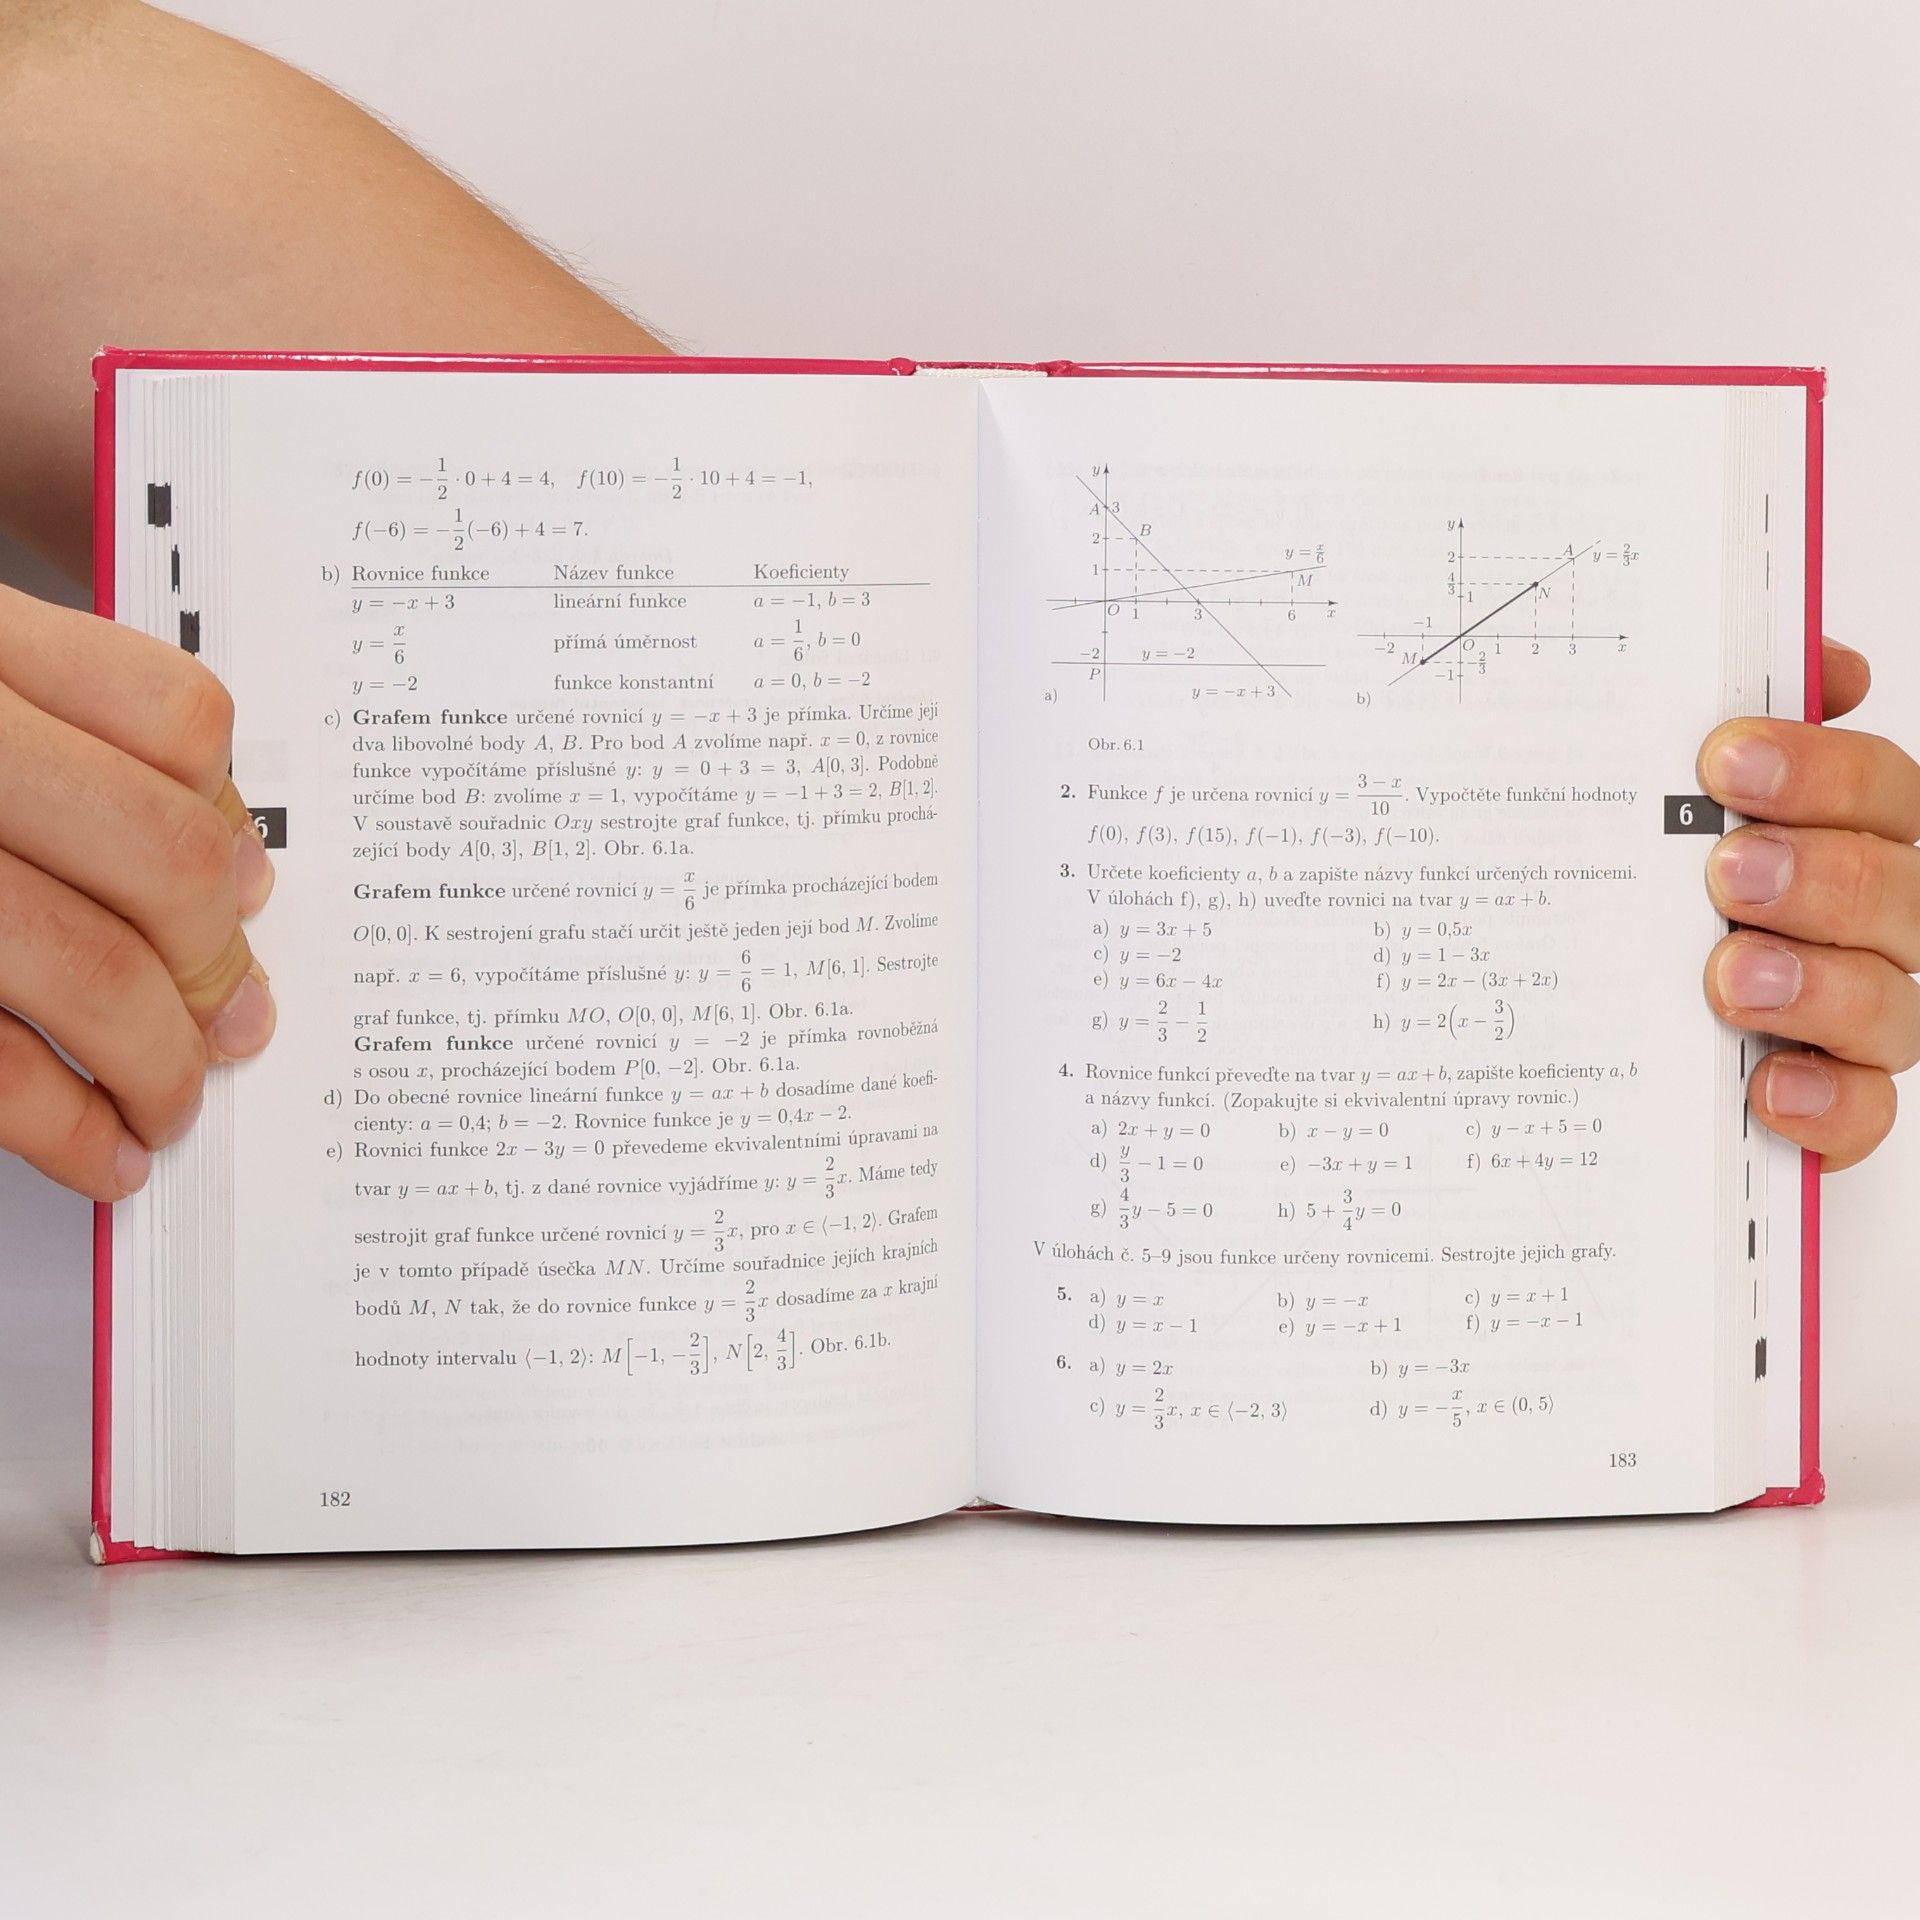 f(0) = −1/2 · 0 + 4 = 4, f(10) = −1/2 · 10 + 4 = −1,
f(−6) = −1/2(−6) + 4 = 7.
b) Rovnice funkce Název funkce Koeficienty
y = −x + 3 lineární funkce a = −1, b = 3
y = x/6 přímá úměrnost a = 1/6, b = 0
y = −2 funkce konstantní a = 0, b = −2
c) Grafem funkce určené rovnicí y = −x + 3 je přímka. Určíme její
dva libovolné body A, B. Pro bod A zvolíme např. x = 0, z rovnice
funkce vypočítáme příslušné y: y = 0 + 3 = 3, A[0, 3]. Podobně
určíme bod B: zvolíme x = 1, vypočítáme y = −1 + 3 = 2, B[1, 2].
V soustavě souřadnic Oxy sestrojte graf funkce, tj. přímku prochá-
zející body A[0, 3], B[1, 2]. Obr. 6.1a.
Grafem funkce určené rovnicí y = x/6 je přímka procházející bodem
O[0, 0]. K sestrojení grafu stačí určit ještě jeden její bod M. Zvolíme
např. x = 6, vypočítáme příslušné y: y = 6/6 = 1, M[6, 1]. Sestrojte
graf funkce, tj. přímku MO, O[0, 0], M[6, 1]. Obr. 6.1a.
Grafem funkce určené rovnicí y = −2 je přímka rovnoběžná
s osou x, procházející bodem P[0, −2]. Obr. 6.1a.
d) Do obecné rovnice lineární funkce y = ax + b dosadíme dané koefi-
cienty: a = 0,4; b = −2. Rovnice funkce je y = 0,4x − 2.
e) Rovnici funkce 2x − 3y = 0 převedeme ekvivalentními úpravami na
tvar y = ax + b, tj. z dané rovnice vyjádříme y: y = 2/3x. Máme tedy
sestrojit graf funkce určené rovnicí y = 2/3x, pro x ∈ ⟨−1, 2⟩. Grafem
je v tomto případě úsečka MN. Určíme souřadnice jejích krajních
bodů M, N tak, že do rovnice funkce y = 2/3x dosadíme za x krajní
hodnoty intervalu ⟨−1, 2⟩: M[−1, −2/3], N[2, 4/3]. Obr. 6.1b.
182
6
y
A 3
B
2
y = x/6
1
M
O 1 3 6 x
−2 y = −2
P
y = −x + 3
a)
y
2 A y = 2/3x
4/3 N
1
−1
−2 O 1 2 3 x
M −2/3
−1
b)
Obr. 6.1
2. Funkce f je určena rovnicí y = (3 − x)/10. Vypočtěte funkční hodnoty
f(0), f(3), f(15), f(−1), f(−3), f(−10).
6
3. Určete koeficienty a, b a zapište názvy funkcí určených rovnicemi.
V úlohách f), g), h) uveďte rovnici na tvar y = ax + b.
a) y = 3x + 5 b) y = 0,5x
c) y = −2 d) y = 1 − 3x
e) y = 6x − 4x f) y = 2x − (3x + 2x)
g) y = 2/3 − 1/2 h) y = 2(x − 3/2)
4. Rovnice funkcí převeďte na tvar y = ax + b, zapište koeficienty a, b
a názvy funkcí. (Zopakujte si ekvivalentní úpravy rovnic.)
a) 2x + y = 0 b) x − y = 0 c) y − x + 5 = 0
d) y/3 − 1 = 0 e) −3x + y = 1 f) 6x + 4y = 12
g) 4/3y − 5 = 0 h) 5 + 3/4y = 0
V úlohách č. 5–9 jsou funkce určeny rovnicemi. Sestrojte jejich grafy.
5. a) y = x b) y = −x c) y = x + 1
d) y = x − 1 e) y = −x + 1 f) y = −x − 1
6. a) y = 2x b) y = −3x
c) y = 2/3x, x ∈ ⟨−2, 3⟩ d) y = −x/5, x ∈ (0, 5⟩
183